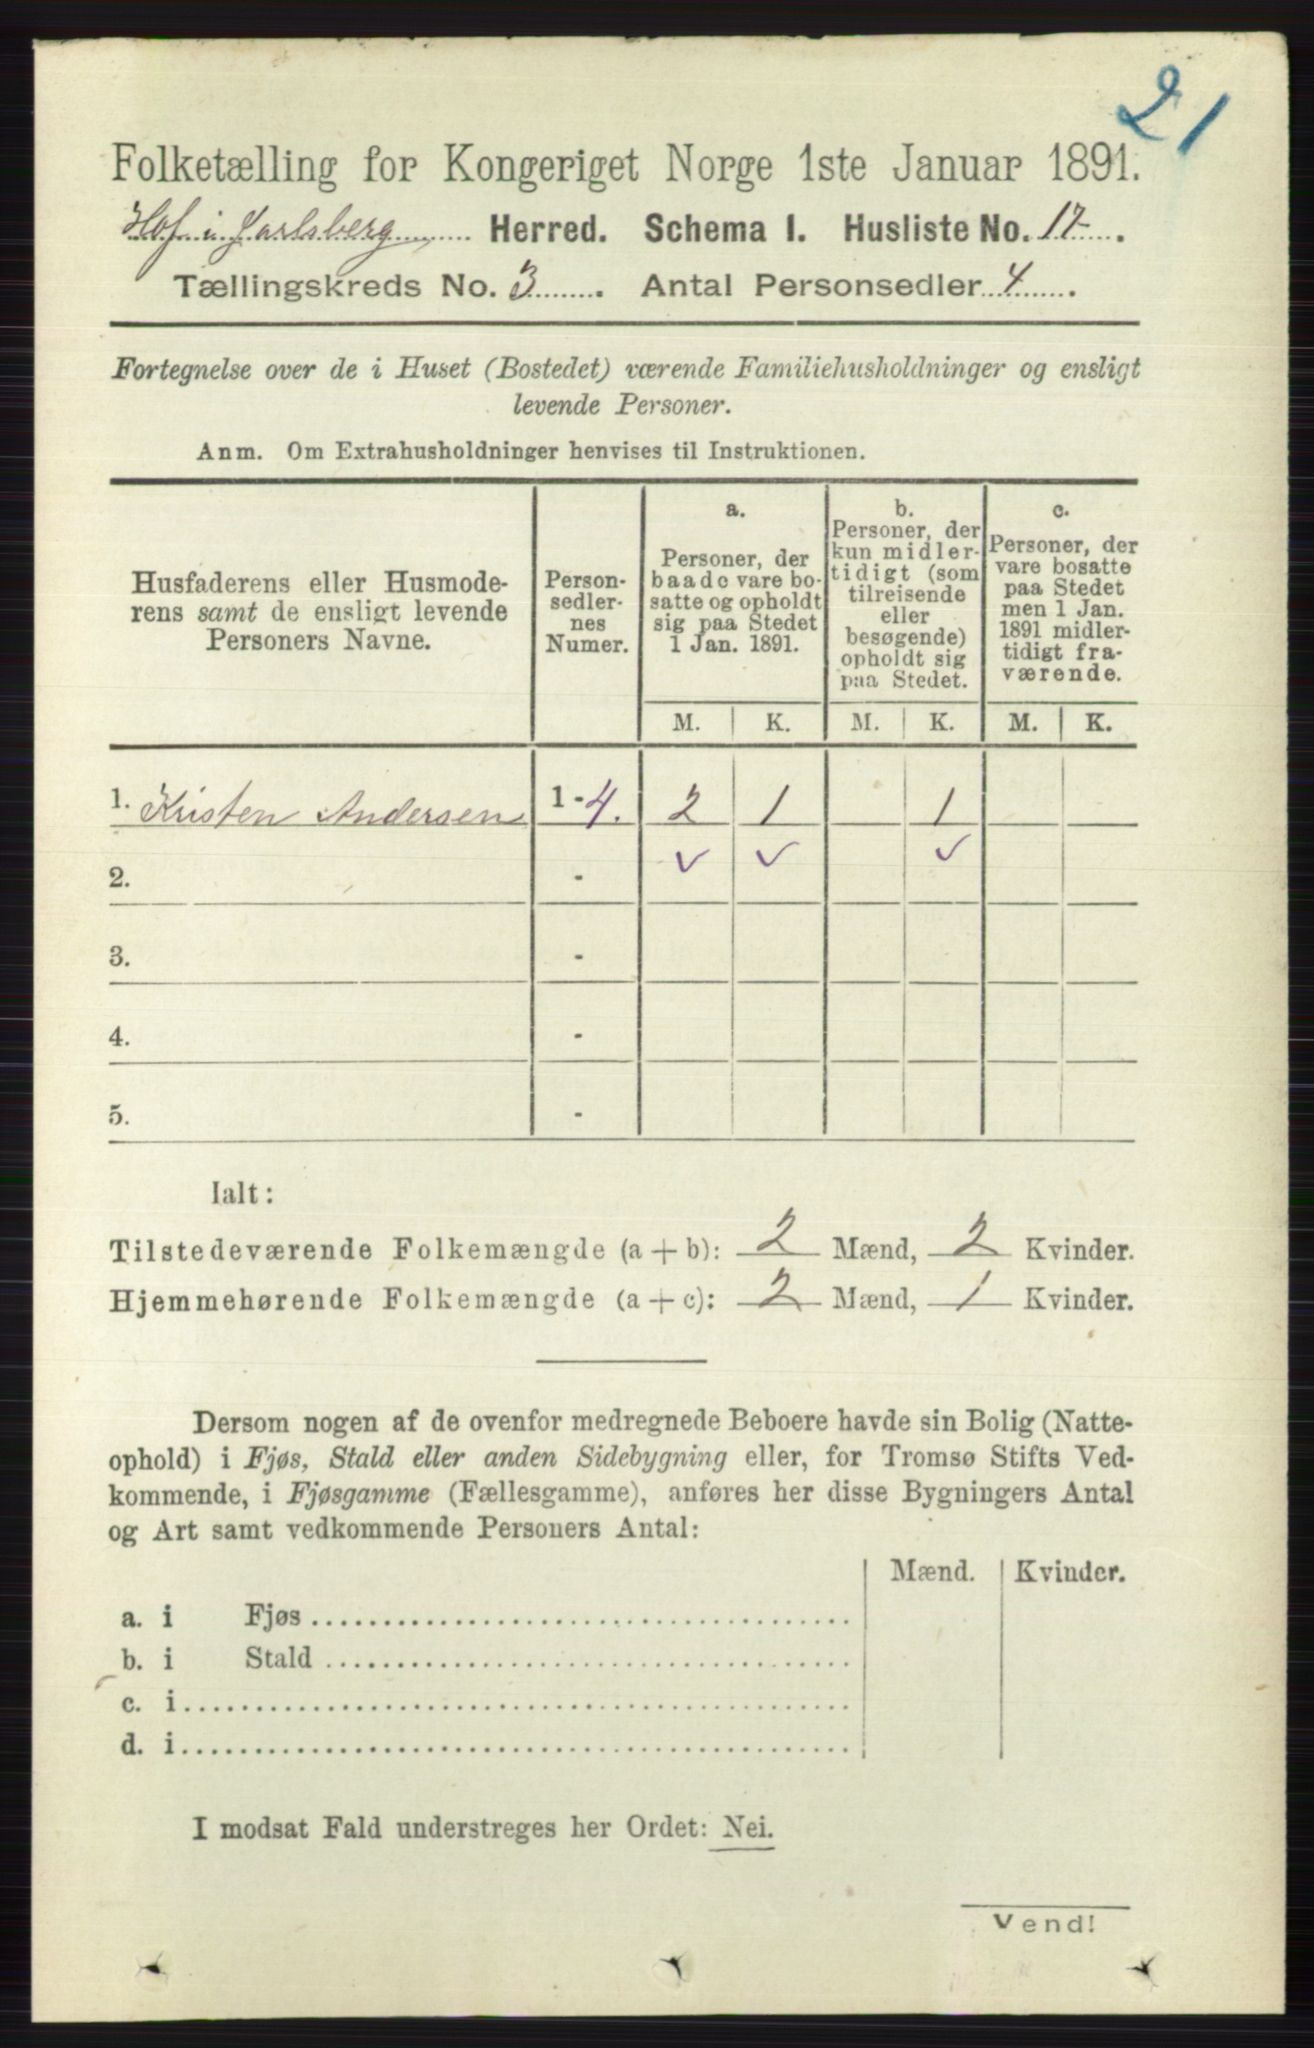 21
Folketælling for Kongeriget Norge 1ste Januar 1891.
Hof i Jarlsberg Herred. Schema I. Husliste No. 17.
Tællingskreds No. 3. Antal Personsedler 4.
Fortegnelse over de i Huset (Bostedet) værende Familiehusholdninger og ensligt
levende Personer.
Anm. Om Extrahusholdninger henvises til Instruktionen.
Husfaderens eller Husmode-
rens samt de ensligt levende
Personers Navne.
Person-
sedler-
nes
Numer.
a.
Personer, der
baade vare bo-
satte og opholdt
sig paa Stedet
1 Jan. 1891.
b.
Personer, der
kun midler-
tidigt (som
tilreisende
eller
besøgende)
opholdt sig
paa Stedet.
c.
Personer, der
vare bosatte
paa Stedet
men 1 Jan.
1891 midler-
tidigt fra-
værende.
M. K. M. K. M. K.
1. Kristen Andersen 1-4. 2 1 1
2. - ✓ ✓ ✓
3. -
4. -
5. -
Ialt:
Tilstedeværende Folkemængde (a + b): 2 Mænd, 2 Kvinder.
Hjemmehørende Folkemængde (a + c): 2 Mænd, 1 Kvinder.
Dersom nogen af de ovenfor medregnede Beboere havde sin Bolig (Natte-
ophold) i Fjøs, Stald eller anden Sidebygning eller, for Tromsø Stifts Ved-
kommende, i Fjøsgamme (Fællesgamme), anføres her disse Bygningers Antal
og Art samt vedkommende Personers Antal:
Mænd. Kvinder.
a. i Fjøs
b. i Stald
c. i
d. i
I modsat Fald understreges her Ordet: Nei.
Vend!